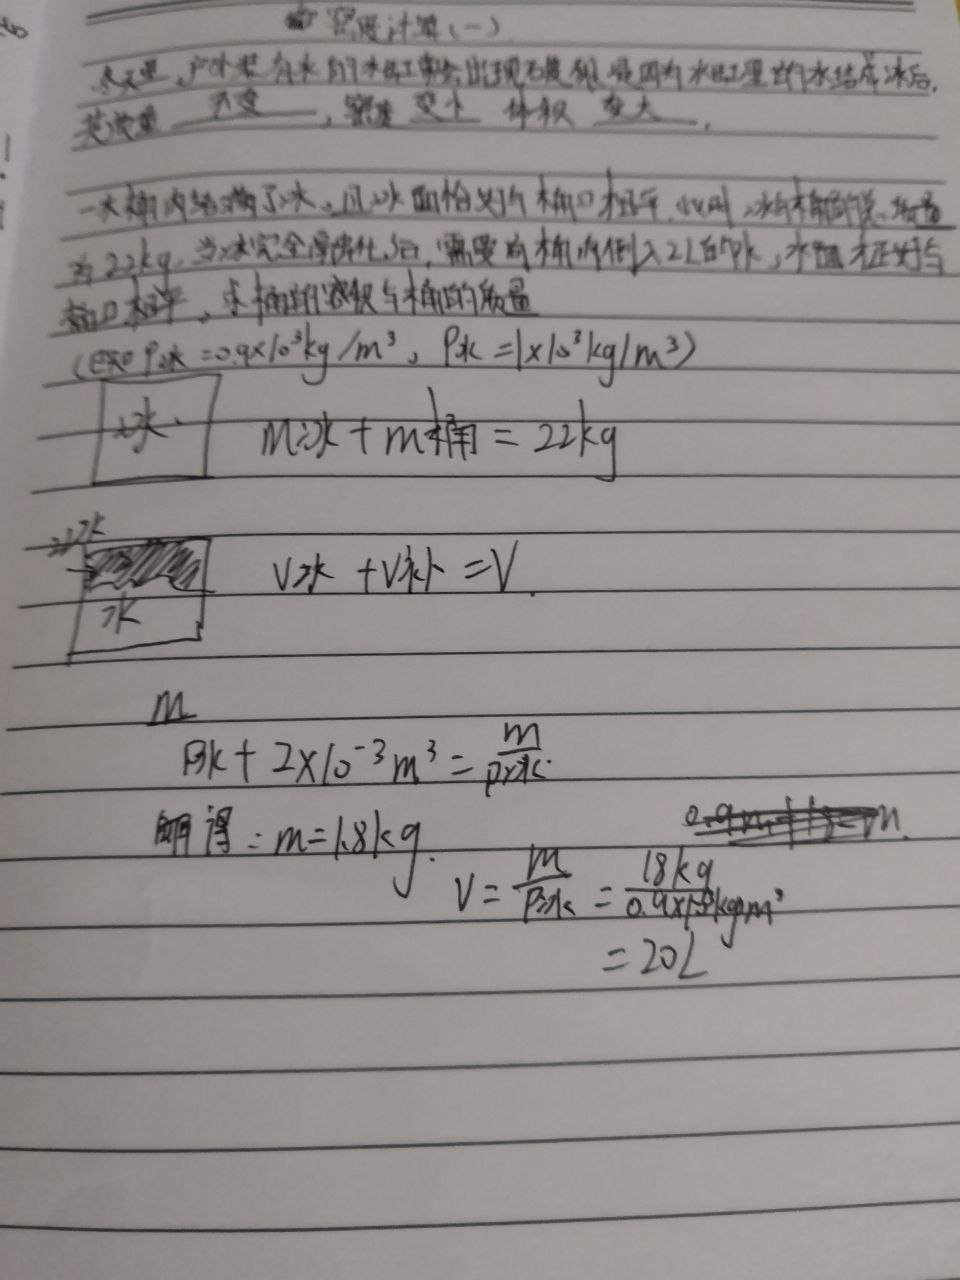 密度计算(一)
冬天里,户外装有水的水缸常会出现破裂,是因为水缸里的水结成冰后,
其质量 不变 ,密度 变小 体积 变大 .
一水桶内结满了冰,且冰面恰好与桶口相平,此时,冰与桶的总质量
为22kg,当冰完全熔化后,需要向桶内倒入2L的水,水面正好与
桶口相平,求桶的容积与桶的质量
(已知ρ冰=0.9×10³kg/m³,ρ水=1×10³kg/m³)
冰. m冰+m桶=22kg
水 V水+V补=V.
水
m
+2×10⁻³m³=m/ρ冰.
解得:m=18kg.
V=m/ρ冰=18kg/0.9×10³kg/m³
=20L